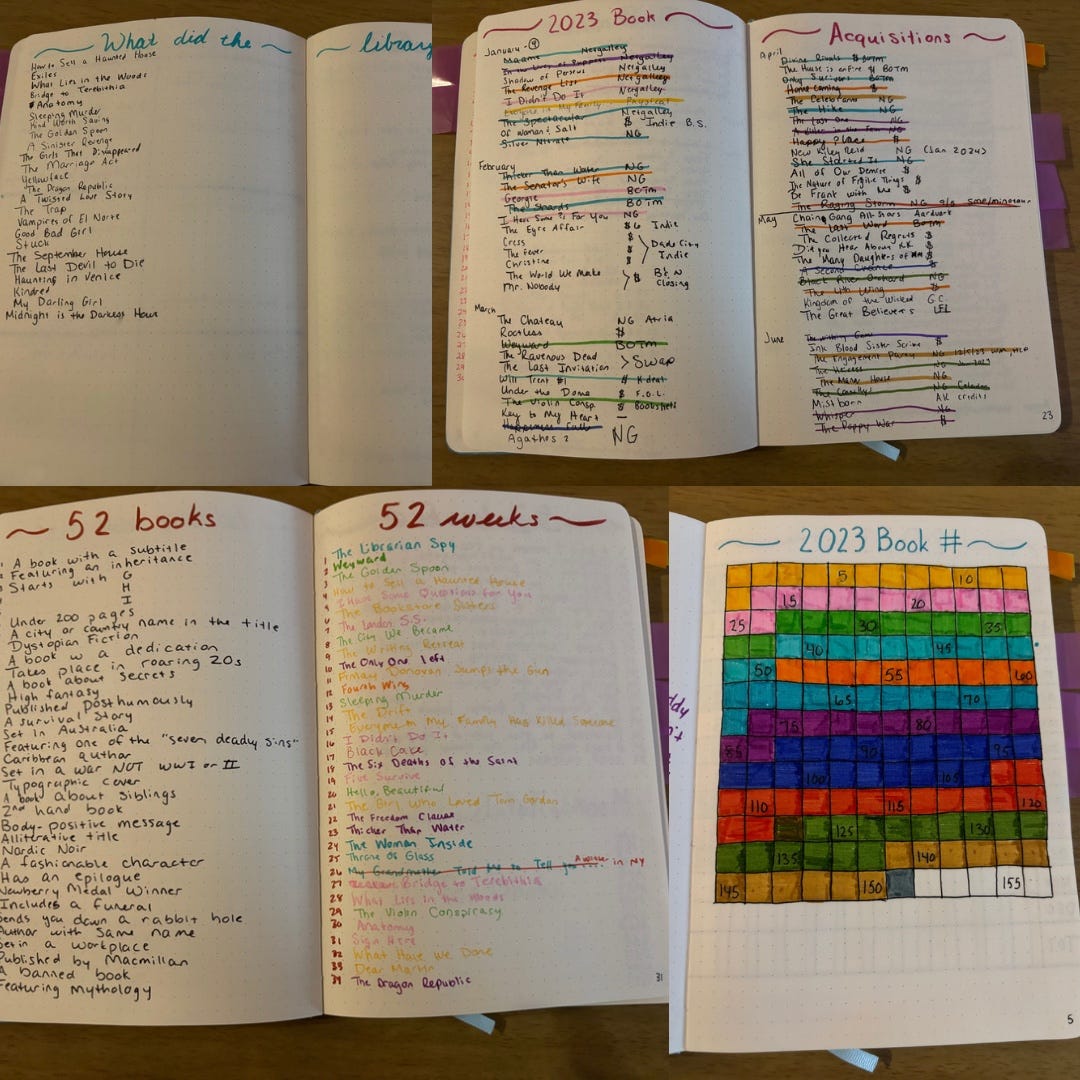 What did the
library
How to Sell a Haunted House
Exiles
What Lies in the Woods
Bridge to Terebithia
Anatomy
Sleeping Murder
Kind Worth Saving
The Golden Spoon
A Sinister Revenge
The Girls That Disappeared
The Marriage Act
Yellowface
The Dragon Republic
A Twisted Love Story
The Trap
Vampires of El Norte
Good Bad Girl
Stuck
The September House
The Last Devil to Die
Haunting in Venice
Kindred
My Darling Girl
Midnight is the Darkest Hour
2023 Book
January - 9
Maame Netgalley
In the Lives of Puppets Netgalley
Shadow of Perseus Netgalley
The Revenge List Netgalley
I Didn't Do It Netgalley
Everyone in My Family Physical
The Spectacular Netgalley
Of Woman & Salt $ Indie B.S.
Silver Nitrate NG
February
Thicker Than Water NG
The Senator's Wife NG
Georgie BOTM
The Shards BOTM
I Have Some ?s For You NG
The Eyre Affair $6 Indie
Cress $
The Fever $ Dade City
Christine $ Indie
The World We Make $ B&N
Mr. Nobody Closing
March
The Chateau NG Atria
Rootless $
Weyward BOTM
The Ravenous Dead
The Last Invitation > Swap
Will Trent #1 $ K-deal
Under the Dome $ F.O.L.
The Violin Consp. $ Bookshelf
Key to My Heart
Happiness Falls
Agathas 2 NG
Acquisitions
April
Divine Rivals $ BOTM
The House is on Fire BOTM
Only Survivors BOTM
Homecoming $
The Celebrants NG
The Hike NG
The Last One NG
A Killer in the Fam NG
Happy Place $
New Kiley Reid NG (Jan 2024)
She Started It NG
All of Our Demise $
The Nature of Fragile Things $
Be Frank with Me $
The Raging Storm NG 9/5 smp/minotaur
May
Chain Gang All-Stars Aardvark
The Last Word BOTM
The Collected Regrets $
Did you Hear About KK $
The Many Daughters of $
A Second Chance $
Black River Orchard NG
The 4th Wing $
Kingdom of the Wicked GC
The Great Believers LFL
June
Ink Blood Sister Scribe $
The Engagement Party NG
The Heiress NG
The Manor House NG
NG
Mistborn AK credits
Whisper NG
The Poppy War $
23
52 books
A book with a subtitle
Featuring an inheritance
Starts with G
H
I
Under 200 pages
A city or country name in the title
Dystopian Fiction
A book w a dedication
Takes place in roaring 20s
A book about secrets
High fantasy
Published Posthumously
A survival Story
Set in Australia
Featuring one of the "seven deadly sins"
Caribbean author
Set in a war NOT WWI or II
Typographic cover
A book about siblings
2nd hand book
Body-positive message
Alliterative title
Nordic Noir
A fashionable character
Has an epilogue
Newberry Medal Winner
Includes a funeral
Sends you down a rabbit hole
Author with same name
Set in a workplace
Published by Macmillan
A banned book
Featuring mythology
52 weeks
The Librarian Spy
1 Weyward
2 The Golden Spoon
3 How to Sell a Haunted House
4 I Have Some Questions for You
5 The Bookstore Sisters
6 The London S.S.
7 The City We Became
8 The Writing Retreat
9 The Only One Left
10 Finlay Donovan Jumps the Gun
11 Fourth Wing
12 Sleeping Murder
13 The Drift
14 Everyone in My Family Has Killed Someone
15 I Didn't Do It
16 Black Cake
17 The Six Deaths of the Saint
18 Five Survive
19 Hello, Beautiful
20 The Girl Who Loved Tom Gordon
21 The Freedom Clause
22 Thicker Than Water
23 The Woman Inside
24 Throne of Glass
25 My Grandmother Told Me to Tell you A winter in NY
26 Bridge to Terebithia
27 What Lies in the Woods
28 The Violin Conspiracy
29 Anatomy
30 Sign Here
31 What Have We Done
32 Dear Martin
33 The Dragon Republic
34
31
2023 Book #
5 10
15 20
25 30 35
40 45
50 55 60
65 70
75 80
85 90 95
100 105
110 115 120
125 130
135 140
145 150 155
5